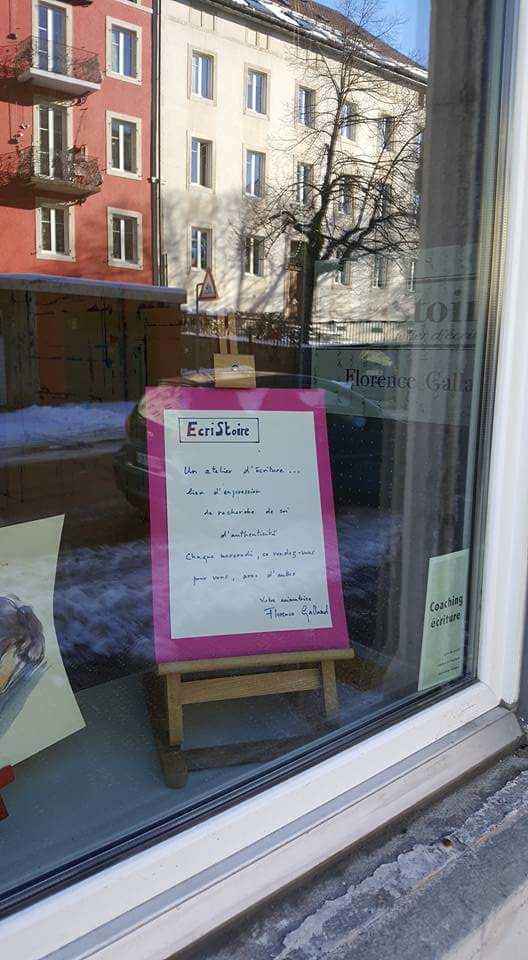 EcriStoire
Un atelier d'écriture...
lieu d'expression
de recherche de soi
d'authenticité
Chaque mercredi, ce rendez-vous
pour vous, avec d'autres
Votre animatrice
Florence Galland
Stoir
d'écri
Florence Galla
Coaching
écriture